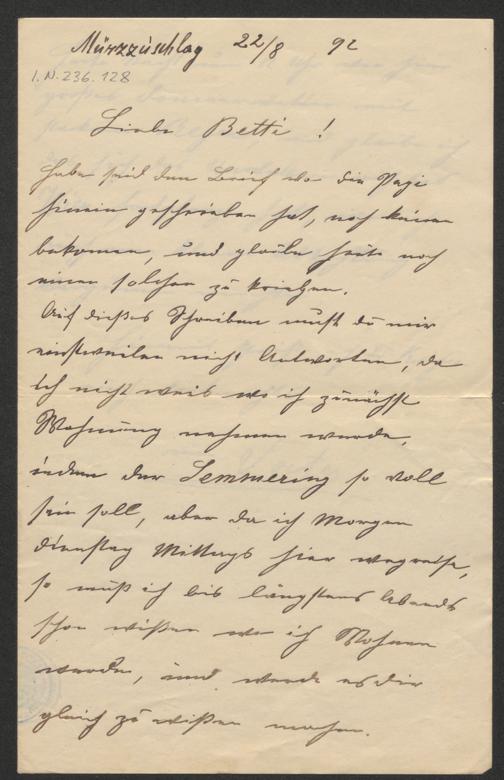 Mürzzuschlag 22/8 92
I.N. 236.128
Liebe Betti !
Habe seid dem Brief wo die Pepi
hinein geschrieben hat, noch keinen
bekomen, und glaube heute noch
einen solchen zu kriegen.
Auf dießes Schreiben must du mir
einstweilen nicht Antworten, da
Ich nicht weis wo ich zunächst
Wohnung nehmen werde,
indem der Semmering so voll
sein soll, aber da ich Morgen
Dienstag Mittags hier wegreise,
so muß ich bis längstens Abends
schon wißen wo ich Wohnen
werde, und werde es dir
gleich zu wißen machen.